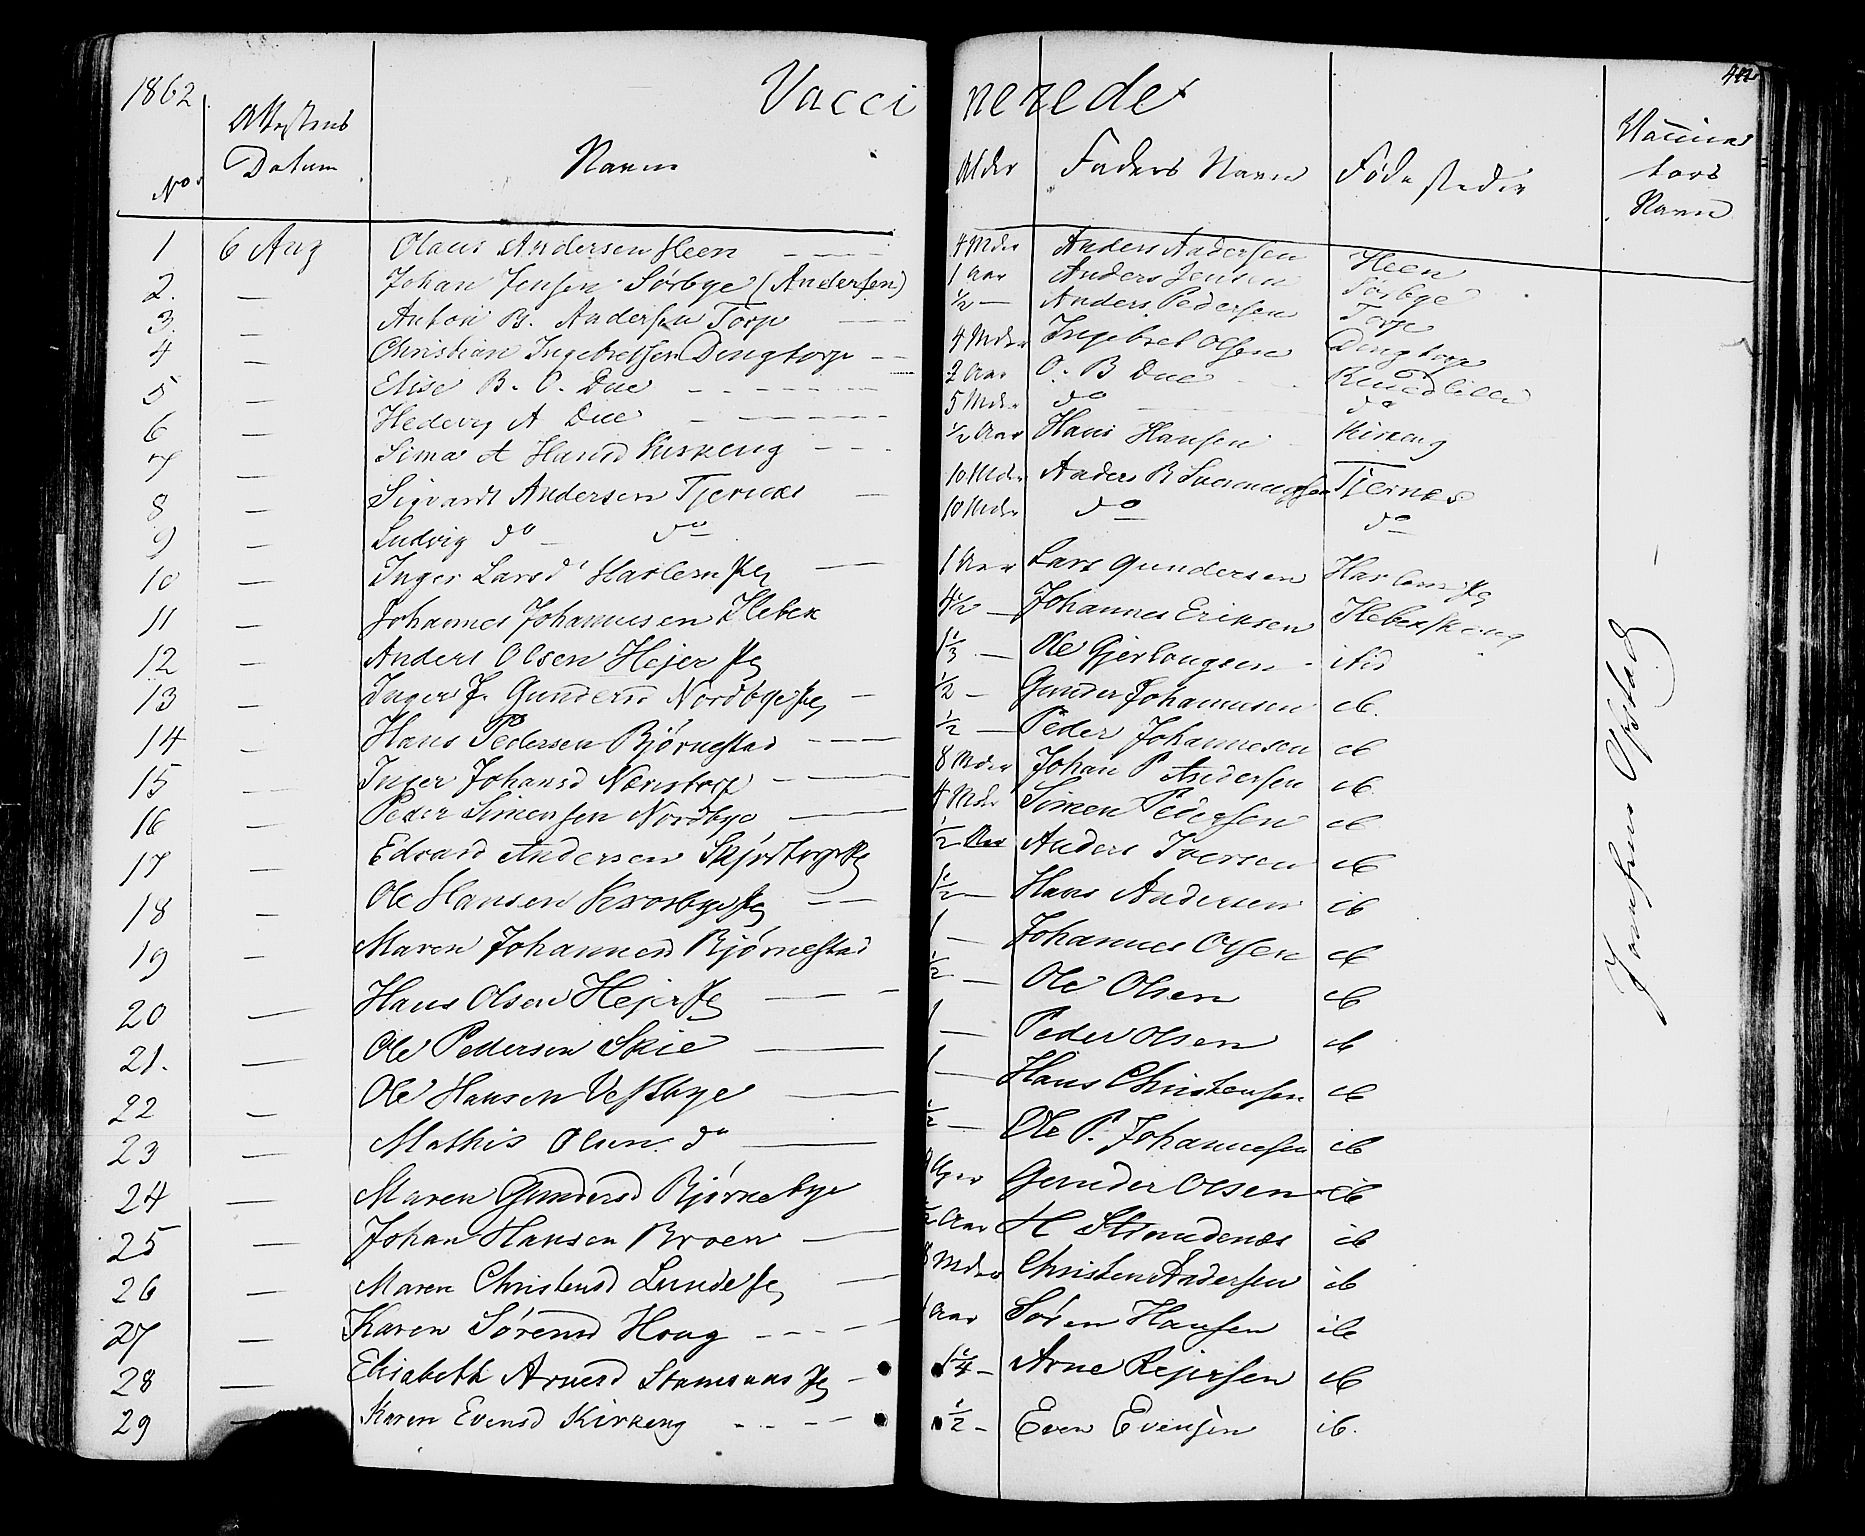 1862 Vaccinerede 412
No Attestens Datum Navn Alder Faders Navn Fødestedet Vaccinatørs Navn
1 6 Aug Olaus Andersen Heen 4 Mdr Anders Andersen Heen
2. — Johan Jensen Sørbye (Andersen) 1 Aar Anders Jensen Sørbye
3. — Anton B. Andersen Torp ½ — Anders Pedersen Torp
4 — Christian Ingebretsen Dingtorp 4 Mdr Ingebret Olsen Dingtorp
5 — Elise B. O. Due 2 Aar O. B Due
6 — Hedevig A Due 5 Mdr do do
7 — Sima A Hansd Kirkeng ½ Aar Hans Hansen Kirkeng
8 — Sigvardt Andersen Tjernes 10 Mdr Anders B Tjernes
9 — Ludvig do do 10 Mdr do do
10 — Inger Larsd Haslem 1 Aar Lars Gundersen
11 — Johannes Johannesen Klebek 4½ — Johannes Eriksen
12 — Anders Olsen Hejer 1⅓ — Ole
13 — Inger J. Gundersd Nordbye ½ — Gunder Johannesen ib.
14 — Hans Pedersen Bjørnestad ½ — Peder Johannesen ib
15 — Inger Johansd 8 Mdr Johan P Andersen ib
16 — Peder Simensen Nordbye 4 Mdr Simen Pedersen ib
17 — Edvard Andersen ½ Aar Anders Iversen ib
18 — Ole Hansen Krosbye 1½ — Hans Andersen ib
19 — Maren Johannesd Bjørnestad 1 — Johannes Olsen ib
20 — Hans Olsen Hejer ½ — Ole Olsen ib
21. — Ole Pedersen Skie 1 — Peder Olsen ib
22 — Ole Hansen Vestbye 1 — Hans Christensen ib
23 — Mathis Olsen do ½ — Ole P. Johannesen ib
24 — Maren Gundersd Bjørnebye Gunder Olsen ib
25 — Johan Hansen Broen ½ Aar H Strandenæs ib
26 — Maren Christensd Lunde 8 Mdr Christen Andersen ib
27 — Karen Sørensd Houg Aar Søren Hansen ib
28 — Elisabeth Arnesd 1¼ — Arne Rejersen ib
29 — Karen Evensd Kirkeng 1½ — Even Evensen ib.
Opstad